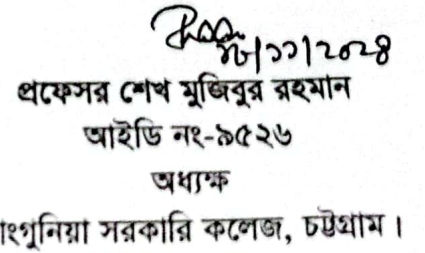 প্রফেসর শেখ মুজিবুর রহমান
আইডি নং-৯৫২৬
অধ্যক্ষ
াংগুনিয়া সরকারি কলেজ, চট্টগ্রাম।